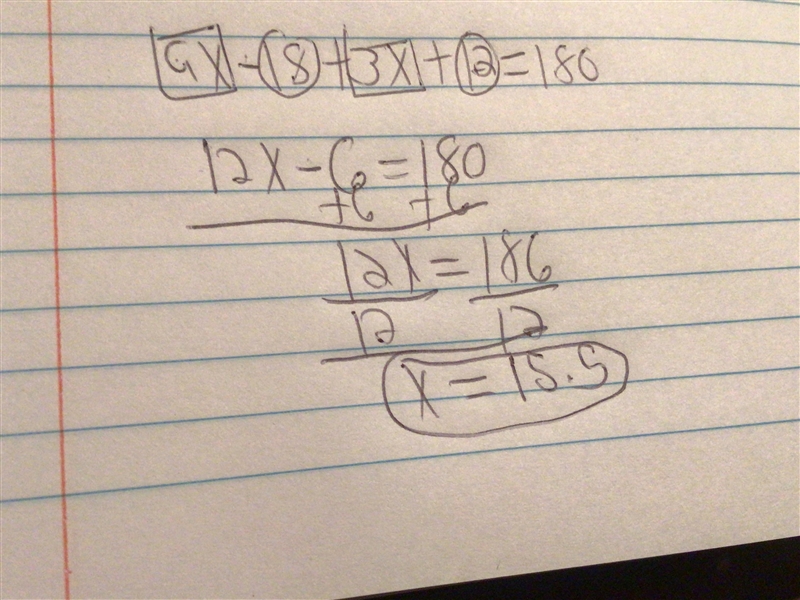 9x - 18 + 3x + 12 = 180
12x - 6 = 180
+6 +6
12x = 186
12 12
x = 15.5